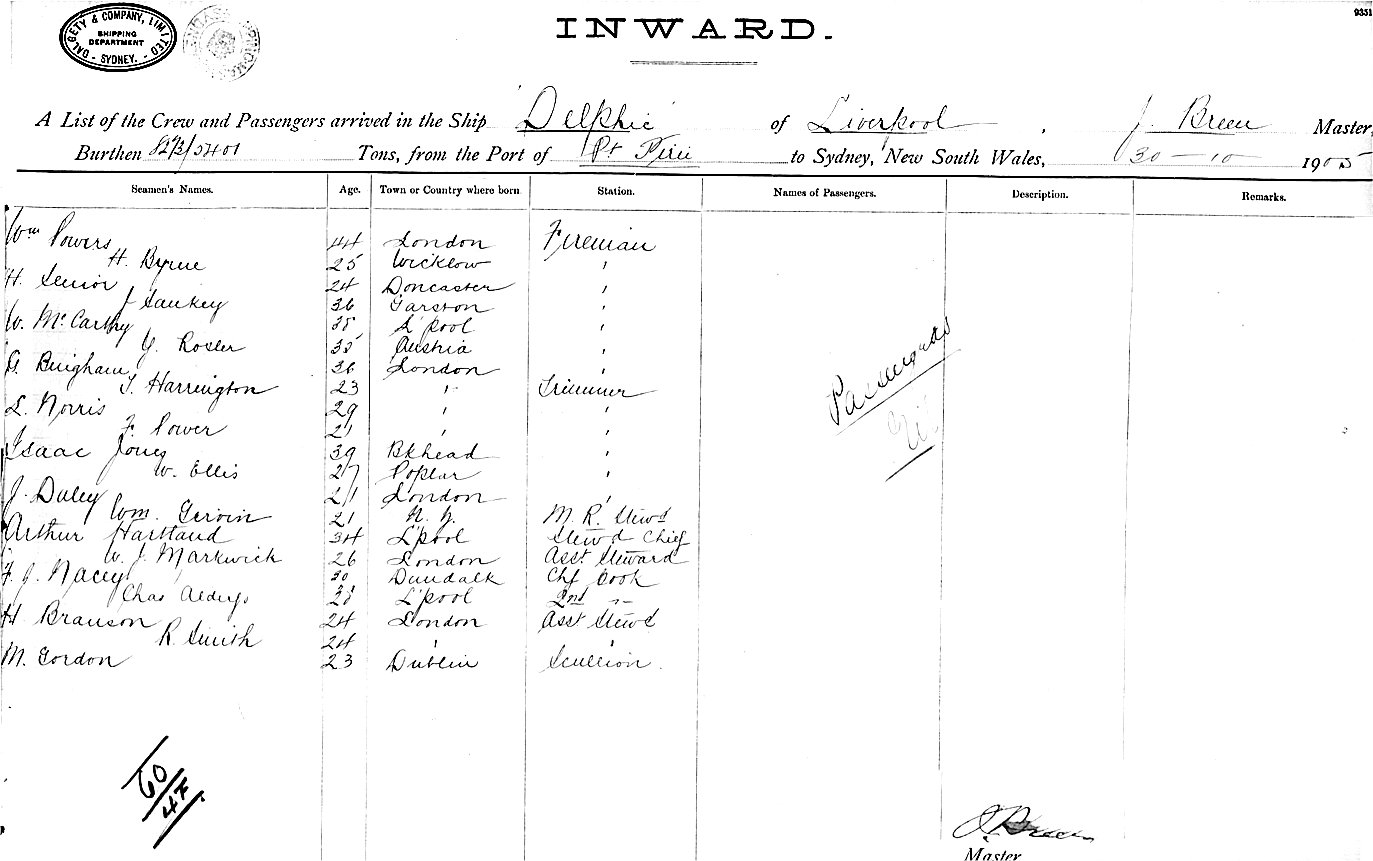 9351
DALGETY & COMPANY, LIMITED
SHIPPING
DEPARTMENT
- SYDNEY. -
INWARD.
A List of the Crew and Passengers arrived in the Ship Delphic of Liverpool , J. Breen Master,
Burthen Tons, from the Port of Pt Pirie to Sydney, New South Wales, 30-10 1905
Seamen's Names. Age. Town or Country where born Station. Names of Passengers. Description. Remarks.
Wm Powers 44 London Fireman
H. Byrne 25 Wicklow "
H. Senior 24 Doncaster "
J Sankey 36 Garston "
W. McCarthy 38 L'pool "
Y. Rosler 35 Austria "
G. Bingham 36 London "
T. Harrington 23 " Trimmer
L. Norris 29 " "
F. Power 21 " "
Isaac Jones 39 Bkhead "
W. Ellis 27 Poplar "
J. Daley 21 London "
Wm. Gervin 21 N. Y. M. R. Stewd
Arthur Hartland 34 L'pool Stew'd Chief
W. J. Markwick 26 London Asst Steward
F. J. Nacey 30 Dundalk Chf Cook
Chas 28 L'pool 2nd "
H Branson 24 London Asst Stewd
R. Smith 24 " "
M. Gordon 23 Dublin Scullion.
Passengers
Nil
60
47
J. Breen
Master